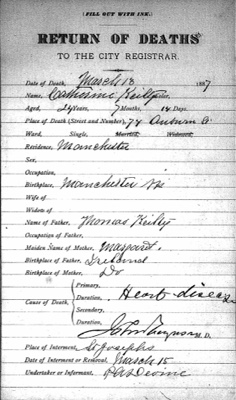 (FILL OUT WITH INK.)
RETURN OF DEATHS
TO THE CITY REGISTRAR.
Date of Death, March 13 1887
Name, Catherine Keilty Color,
Aged, 24 Years, 7 Months, 14 Days.
Place of Death (Street and Number), 74 Auburn St
Ward, Single, Married, Widowed.
Residence, Manchester
Sex,
Occupation,
Birthplace, Manchester NH
Wife of
Widow of
Name of Father, Thomas Keilty
Occupation of Father,
Maiden Name of Mother, Margaret
Birthplace of Father, Ireland
Birthplace of Mother, Do
Cause of Death, Primary,
Duration, Heart disease
Secondary,
Duration,
M. D.
Place of Interment, St Josephs
Date of Interment or Removal, March 15
Undertaker or Informant, P A Devine